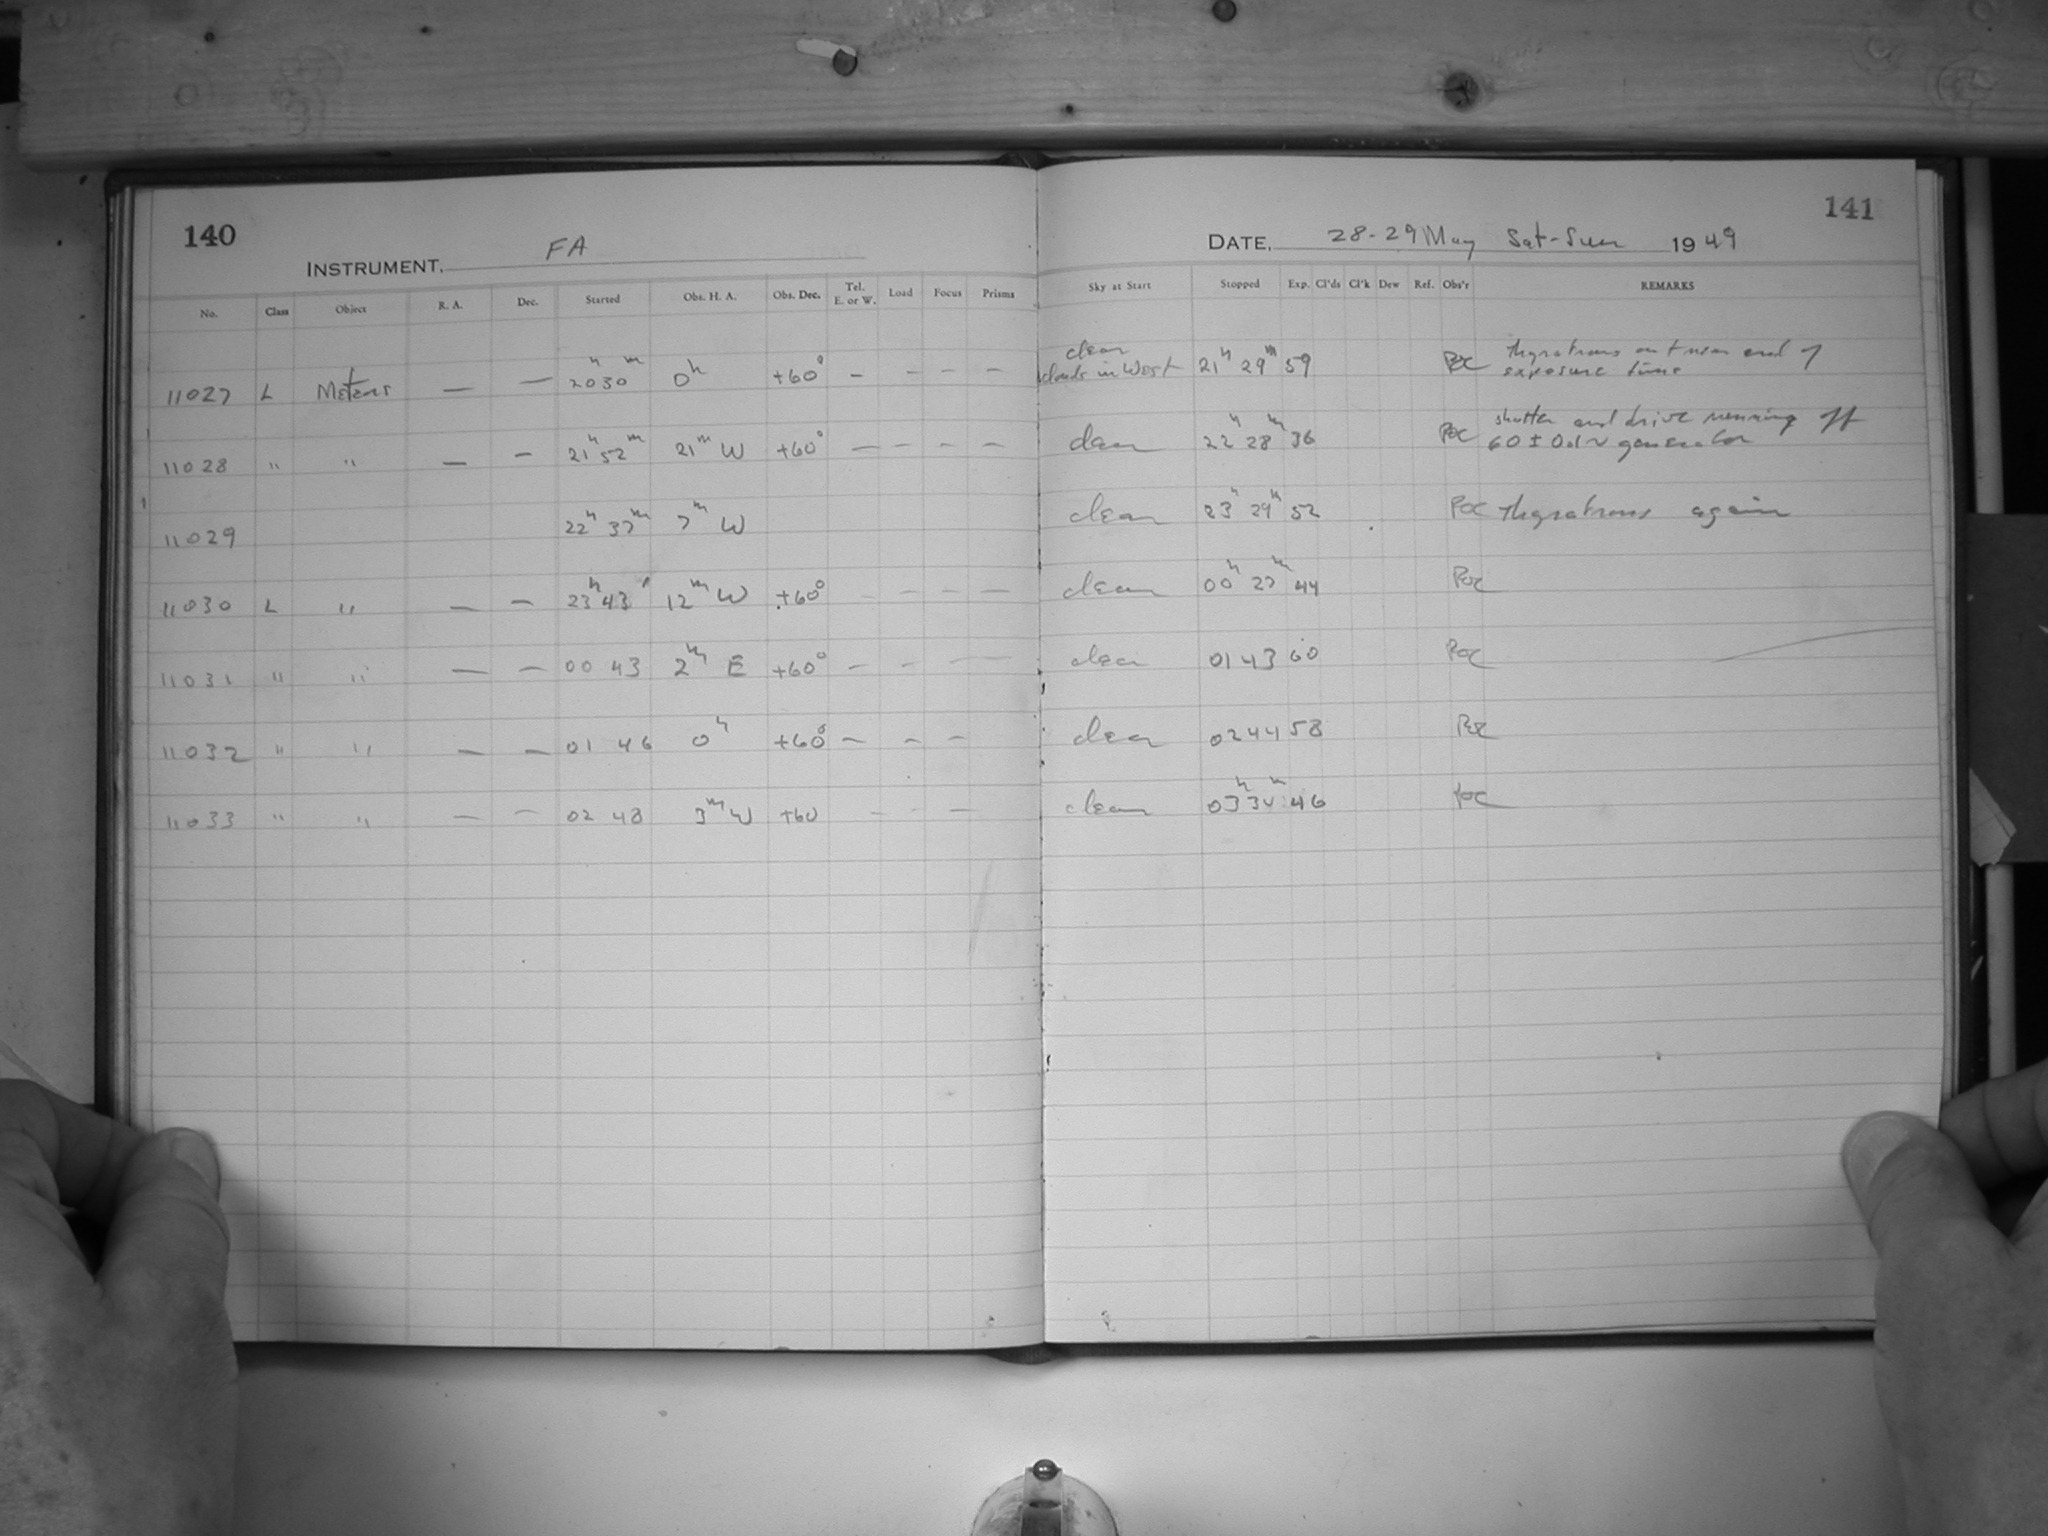 140
INSTRUMENT, FA
No. Class Object R. A. Dec. Started Obs. H. A. Obs. Dec. Tel. E. or W. Load Focus Prisms
11027 L Meteors — — 20h 30m 0h +60° — — — —
11028 " " — — 21h 52m 21m W +60° — — — —
11029 22h 37m 7m W
11030 L " — — 23h 43 12m W +60° — — — —
11031 " " — — 00 43 2m E +60° — — — —
11032 " " — — 01 46 0h +60° — — —
11033 " " — — 02 48 3m W +60 — —
141
DATE, 28-29 May Sat-Sun 1949
Sky at Start Stopped Exp. Cl'ds Cl'k Dew Ref. Obs'r REMARKS
clear
clouds in West 21h 29m 59 POC thyratrons out near end of
exposure time
clear 22h 28m 36 POC shutter and drive running off
60 ± 0.1 ~ generator
clear 23h 29m 52 POC thyratrons again
clear 00h 27m 44 POC
clear 01 43 60 POC
clear 02 44 58 POC
clear 03h 46 POC